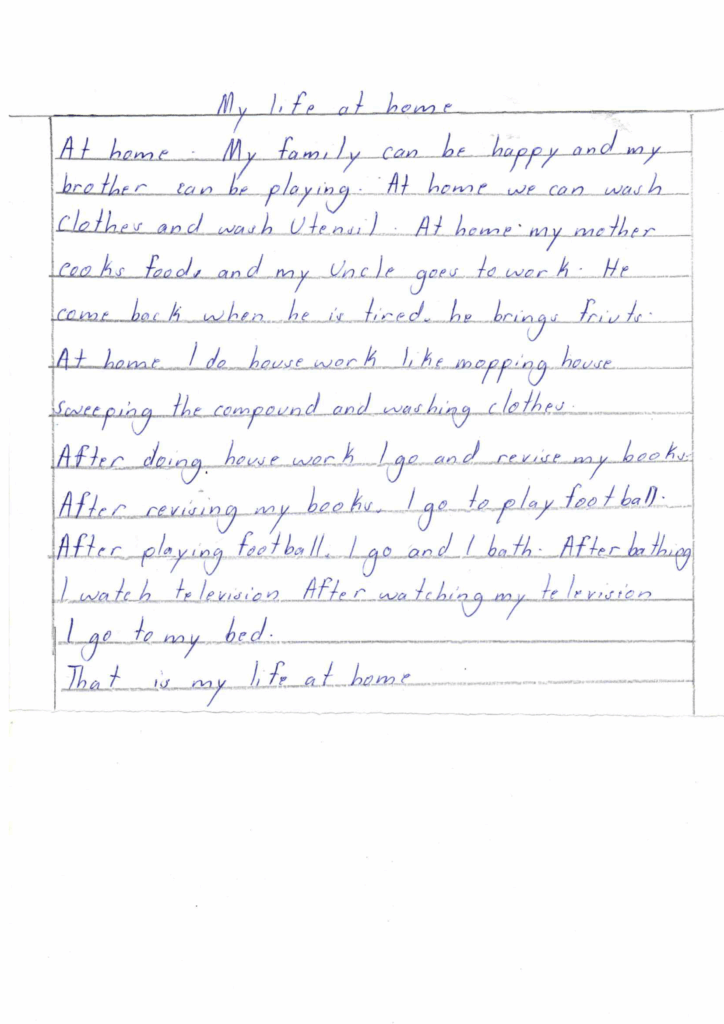 My life at home
At home. My family can be happy and my
brother can be playing. At home we can wash
clothes and wash Utensil. At home. my mother
cooks food, and my Uncle goes to work. He
come back when he is tired. he brings friuts.
At home I do house work like mopping house
sweeping the compound and washing clothes.
After doing house work I go and revise my books.
After revising my books. I go to play football.
After playing football. I go and I bath. After bathing
I watch television After watching my television
I go to my bed.
That is my life at home